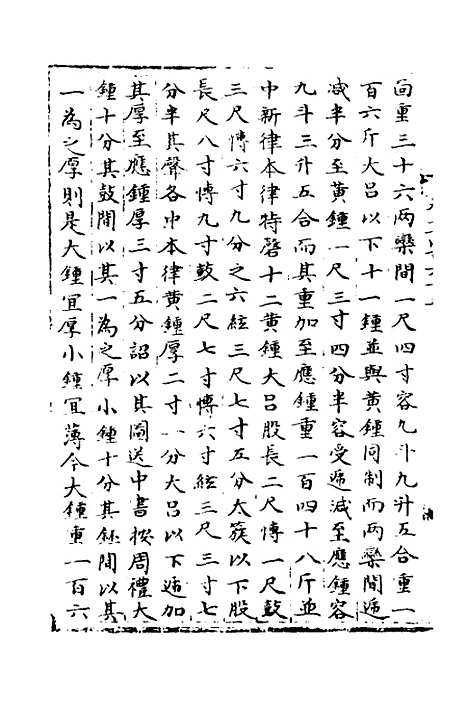 面重三十六兩欒間一尺四寸容九斗九升五合重一
百六斤大吕以下十一鍾並與黄鍾同制而兩欒間遞
减半分至黄鍾一尺三寸四分半容受遞減至應鍾容
九斗三升五合而其重加至應鍾重一百四十八斤並
中新律本律特磬十二黄鍾大吕股長二尺博一尺鼓
三尺博六寸九分之六絃三尺七寸五分太簇以下股
長尺八寸博九寸鼓二尺七寸博六寸絃三尺三寸七
分半其聲各中本律黄鍾厚二寸一分大吕以下遞加
其厚至應鍾厚三寸五分詔以其圖送中書按周禮大
鍾十分其鼓間以其一為之厚小鍾十分其鉦間以其
一為之厚則是大鍾宜厚小鍾宜薄今大鍾重一百六